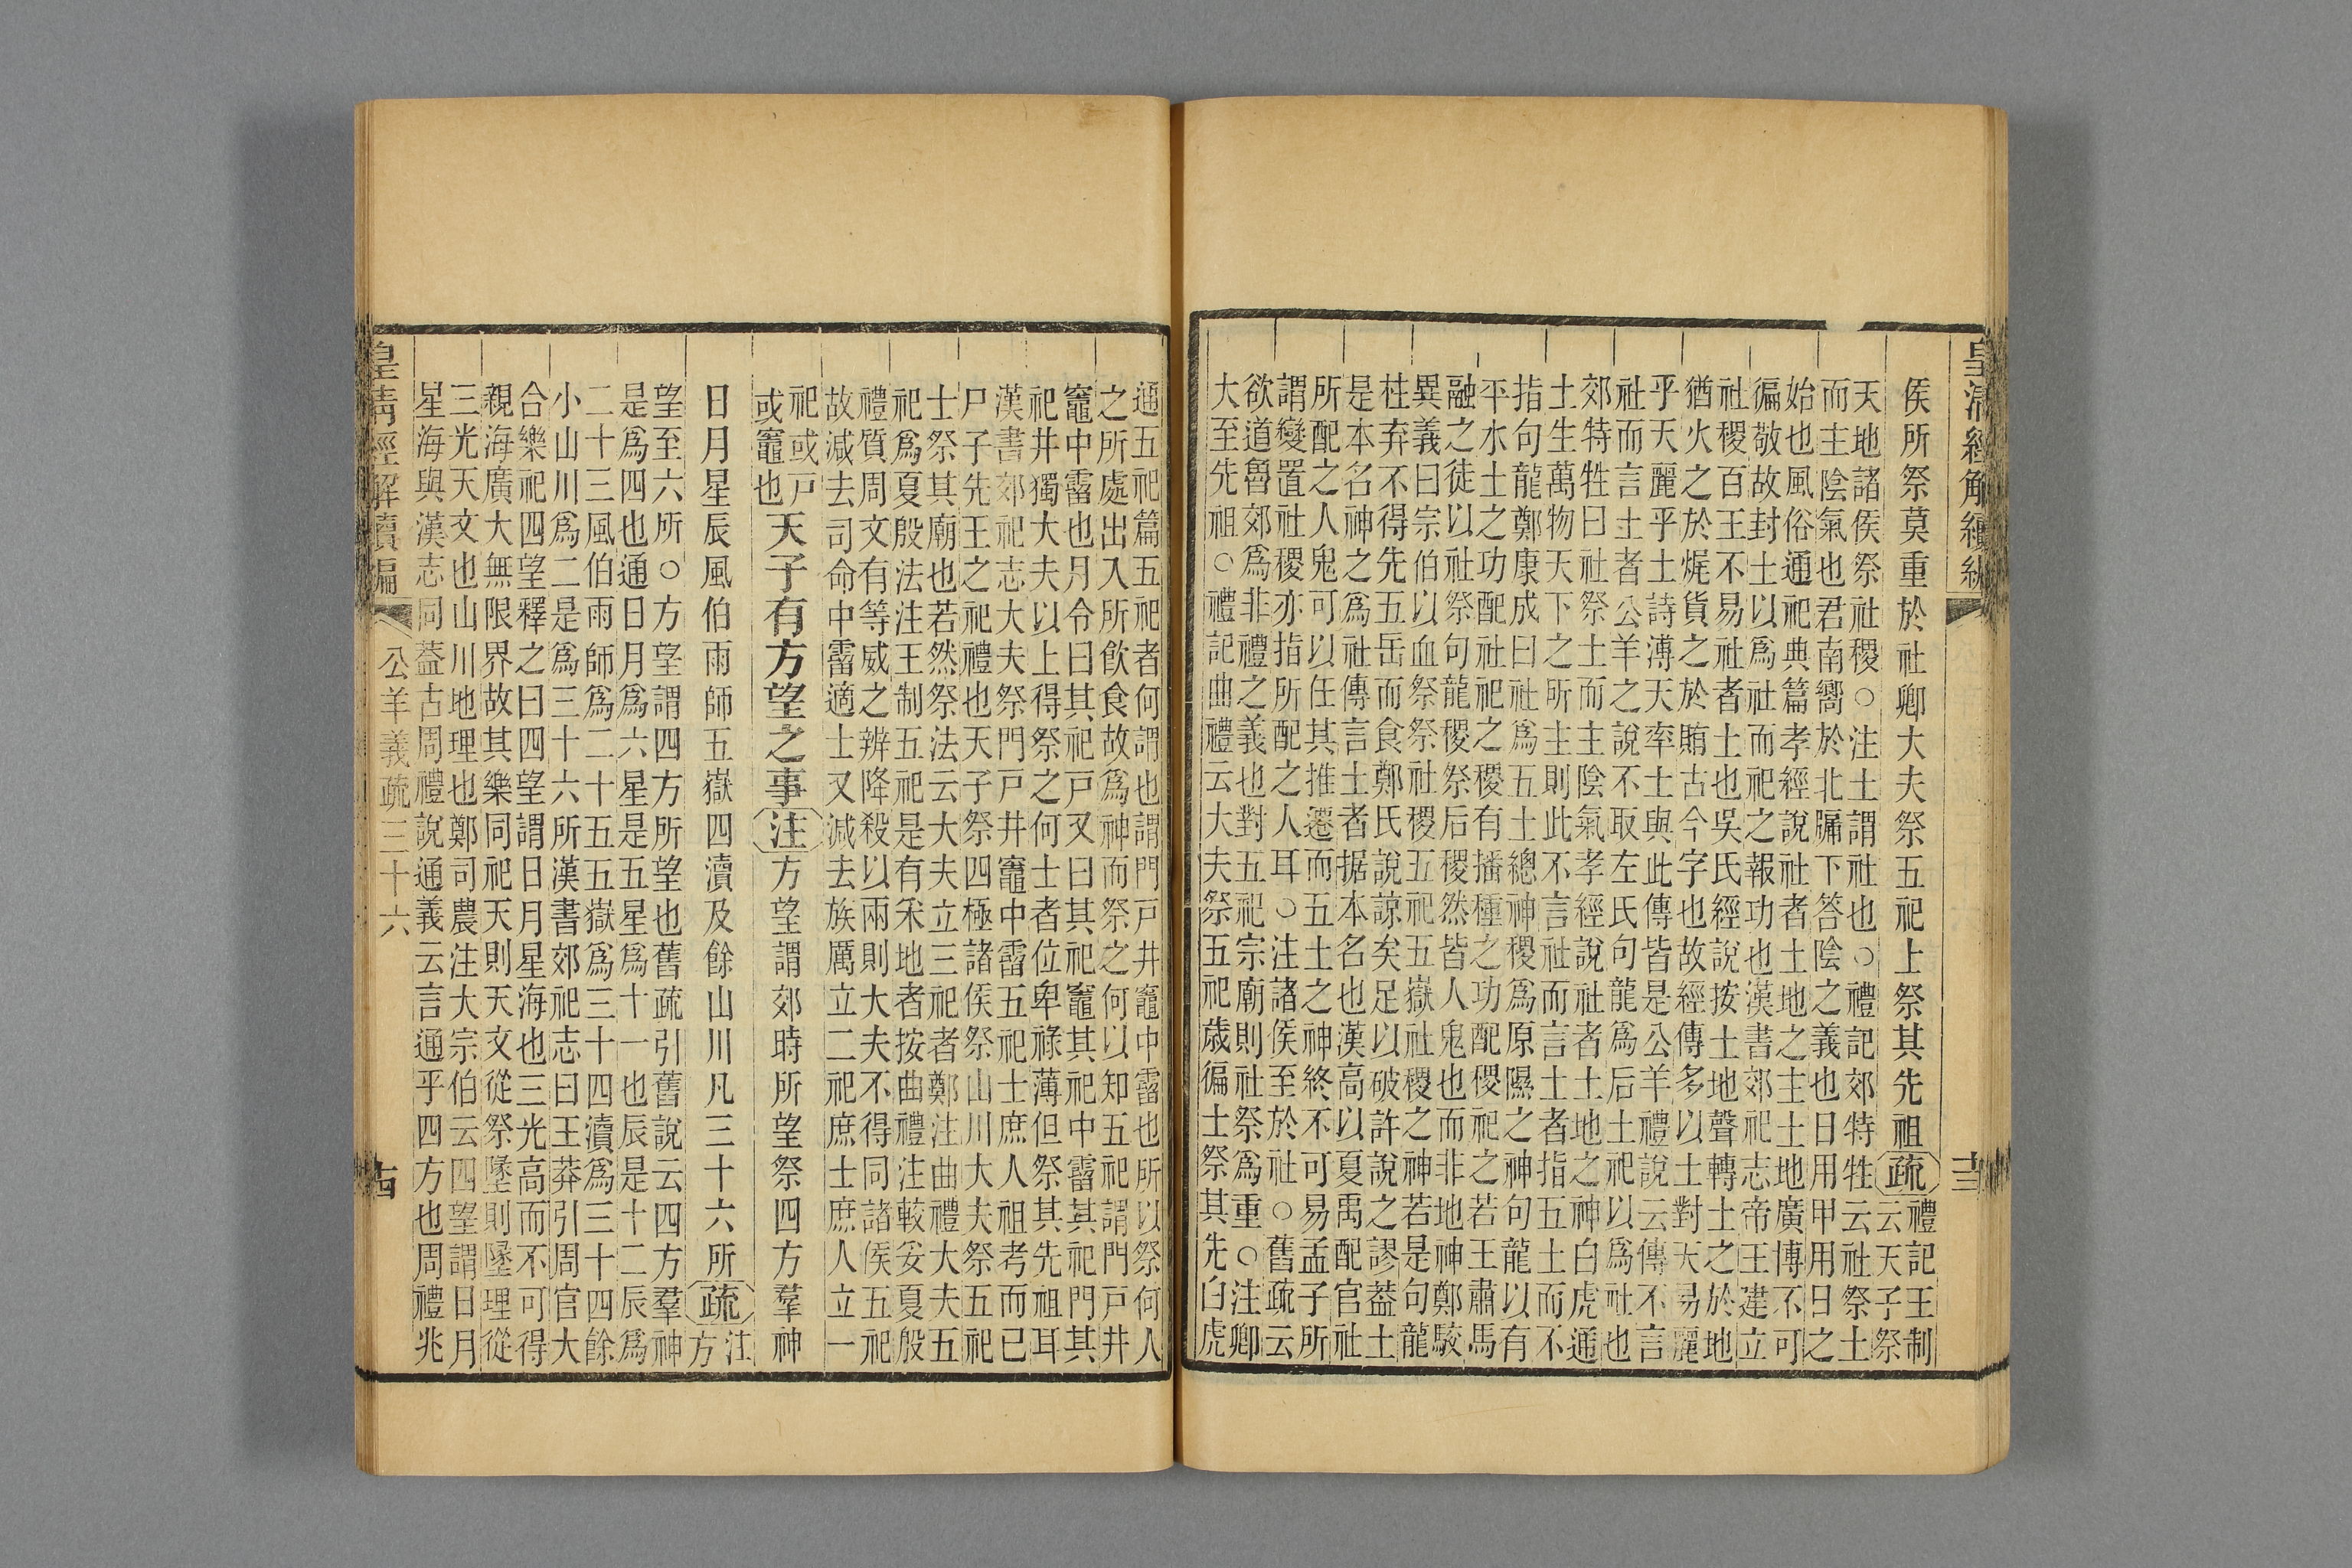 皇清經解續編
十三
侯所祭莫重於社卿大夫祭五祀上祭其先祖疏禮記王制
云天子祭
天地諸侯祭社稷○注土謂社也○禮記郊特牲云社祭土
而主陰氣也君南嚮於北牖下答陰之義也日用甲用日之
始也風俗通祀典篇孝經說社者土地之主土地廣博不可
徧敬故封土以爲社而祀之報功也漢書郊祀志帝王建立
社稷百王不易社者土也吳氏經說按土地聲轉土之於地
猶火之於𤈦貨之於賄古今字也故經傳多以土對天易麗
乎天麗乎土詩溥天率土與此傳皆是公羊禮說云傳不言
社而言土者公羊之說不取左氏句龍爲后土祀以爲社也
郊特牲曰社祭土而主陰氣孝經說社者土地之神白虎通
土生萬物天下之所主則此不言社而言土者指五土而不
指句龍鄭康成曰社爲五土總神稷爲原隰之神句龍以有
平水土之功配社祀之稷有播種之功配稷祀之若王肅馬
融之徒以社祭句龍稷祭后稷然皆人鬼也而非地神鄭駮
異義曰宗伯以血祭祭社稷五祀五嶽社稷之神若是句龍
柱弃不得先五岳而食鄭氏說諒矣足以破許說之謬葢土
是本名神之爲社傳言土者据本名也漢高以夏禹配官社
所配之人鬼可以任其推遷而五土之神終不可易孟子所
謂變置社稷亦指所配之人耳○注諸侯至於社○舊疏云
欲道魯郊爲非禮之義也對五祀宗廟則社祭爲重○注卿
大至先祖○禮記曲禮云大夫祭五祀歲徧士祭其先白虎
通五祀篇五祀者何謂也謂門戸井竈中霤也所以祭何人
之所處出入所飲食故爲神而祭之何以知五祀謂門戸井
竈中霤也月令曰其祀戸又曰其祀竈其祀中霤其祀門其
祀井獨大夫以上得祭之何士者位卑祿薄但祭其先祖耳
漢書郊祀志大夫祭門戸井竈中霤五祀士庶人祖考而已
尸子先王之祀禮也天子祭四極諸侯祭山川大夫祭五祀
士祭其廟也若然祭法云大夫立三祀者鄭注曲禮大夫五
祀爲夏殷法注王制五祀是有采地者按曲禮注較妥夏殷
禮質周文有等威之辨降殺以兩則大夫不得同諸侯五祀
故減去司命中霤適士又減去族厲立二祀庶士庶人立一
祀或戸
或竈也天子有方望之事注方望謂郊時所望祭四方羣神
日月星辰風伯雨師五嶽四瀆及餘山川凡三十六所疏注
方
望至六所○方望謂四方所望也舊疏引舊說云四方羣神
是爲四也通日月爲六星是五星爲十一也辰是十二辰爲
二十三風伯雨師爲二十五五嶽爲三十四瀆爲三十四餘
小山川爲二是爲三十六所漢書郊祀志曰王莽引周官大
合樂祀四望釋之曰四望謂日月星海也三光高而不可得
親海廣大無限界故其樂同祀天則天文從祭墬則墬理從
三光天文也山川地理也鄭司農注大宗伯云四望謂日月
星海與漢志同葢古周禮說通義云言通乎四方也周禮兆
皇清經解續編
公羊義疏三十六
十四